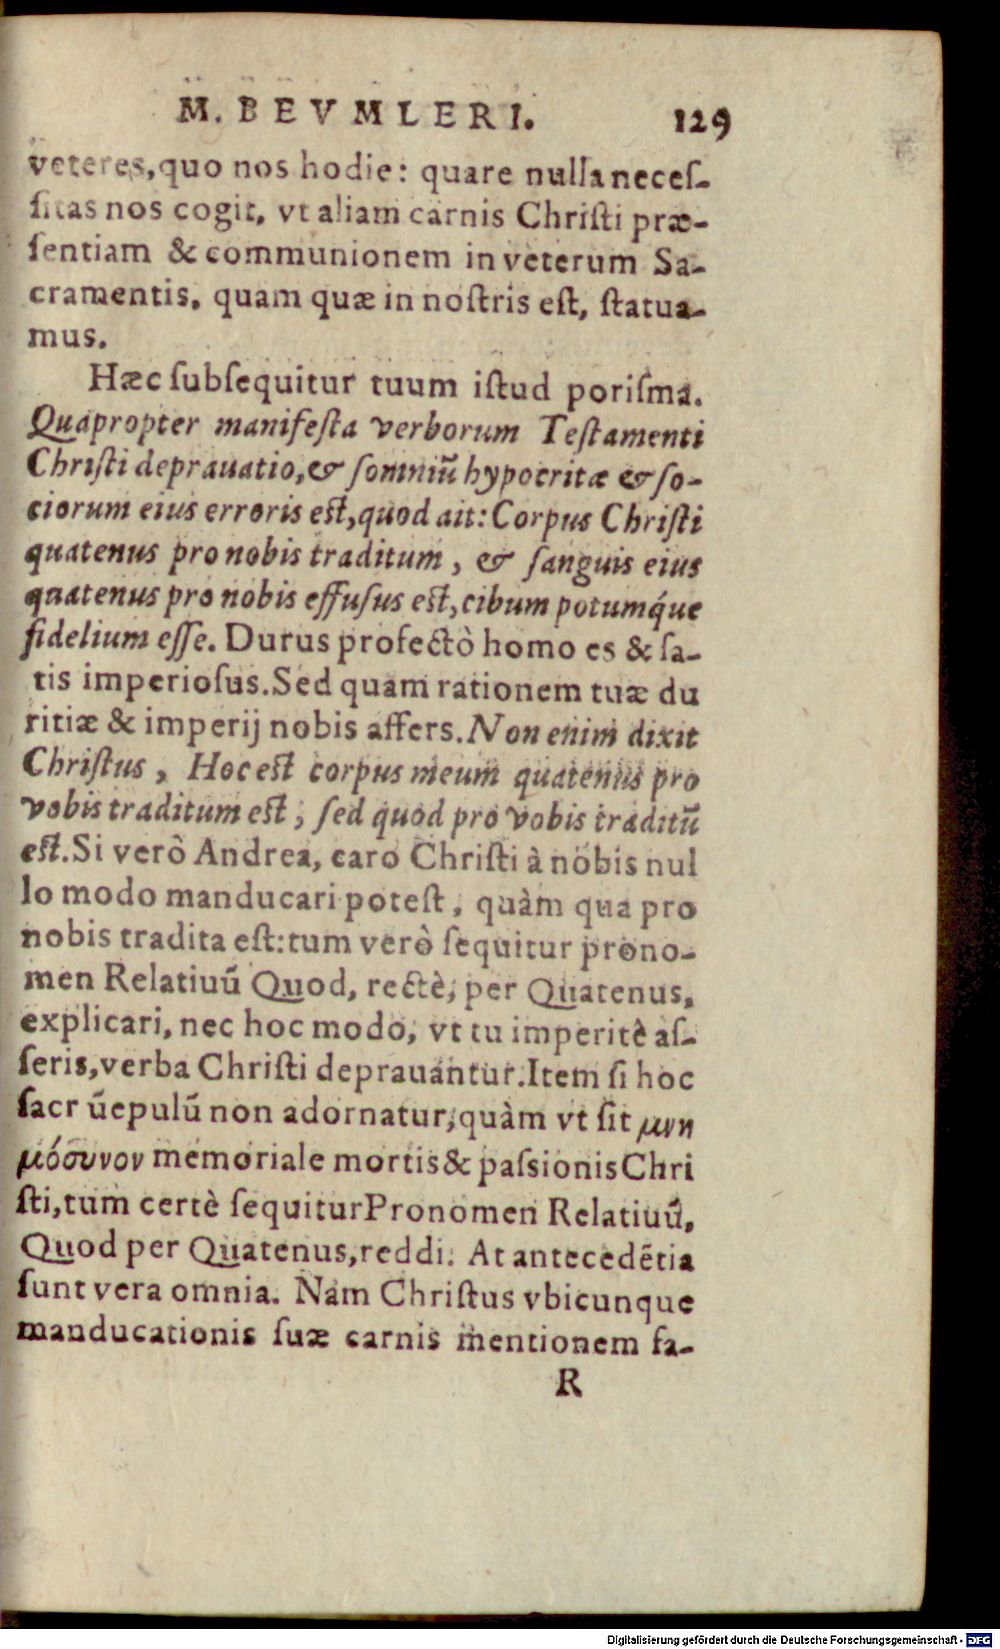 M. BEVMLERI. 129
veteres, quo nos hodie: quare nulla neceſ-
ſitas nos cogit, vt aliam carnis Chriſti præ-
ſentiam & communionem in veterum Sa-
cramentis, quam quæ in noſtris eſt, ſtatua-
mus.
Hæc ſubſequitur tuum iſtud poriſma.
Quapropter manifeſta verborum Teſtamenti
Chriſti deprauatio, & ſomniū hypocritæ & ſo-
ciorum eius erroris eſt, quod ait: Corpus Chriſti
quatenus pro nobis traditum, & ſanguis eius
quatenus pro nobis effuſus eſt, cibum potumq́ue
fidelium eſſe. Durus profectò homo es & ſa-
tis imperioſus. Sed quam rationem tuæ du
ritiæ & imperij nobis affers. Non enim dixit
Chriſtus, Hoc eſt corpus meum quatenus pro
vobis traditum eſt, ſed quod pro vobis traditū
eſt. Si verò Andrea, caro Chriſti à nobis nul
lo modo manducari poteſt, quàm qua pro
nobis tradita eſt: tum verò ſequitur prono-
men Relatiuū Quod, rectè, per Quatenus,
explicari, nec hoc modo, vt tu imperitè aſ-
ſeris, verba Chriſti deprauantur. Item ſi hoc
ſacr ūepulū non adornatur, quàm vt ſit μνη
μόσυνον memoriale mortis & paſsionis Chri
ſti, tum certè ſequitur Pronomen Relatiuū,
Quod per Quatenus, reddi. At antecedētia
ſunt vera omnia. Nam Chriſtus vbicunque
manducationis ſuæ carnis mentionem fa-
R
Digitalisierung gefördert durch die Deutsche Forschungsgemeinschaft - DFG